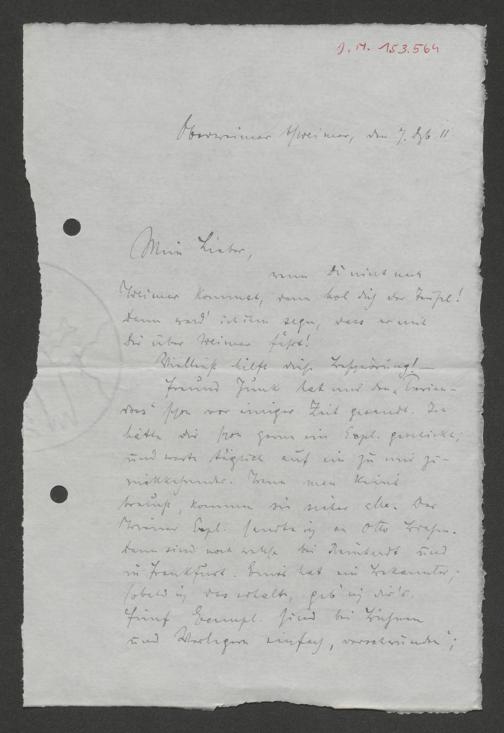 J. N. 153.564
Oberweimar b/Weimar, den 7. Dzb. 11
Mein Lieber,
wenn Du nicht nach
Weimar kommst, dann hol dich der Teufel!
Dann werd' ich ihm sagen, dass er mit
Dir über Weimar fährt!
Vielleicht hilft diese Beschwörung! —
Freund Junk hat mir den
schon vor einiger Zeit gesandt. Ich
hätte Dir schon gern ein Expl. geschickt,
und warte täglich auf ein zu mir zu-
rückkehrendes. Wenn man keins
braucht, kommen sie sicher alle. Das
Wiener Expl. sandte ich an Otto Brahm.
Dann sind noch welche bei Reinhardt und
in Frankfurt. Eines hat ein Bekannter;
sobald ich das erhalte, geb' ich dir's.
Fünf Exempl. sind bei Bühnen
und Verlegern einfach „verschwunden";